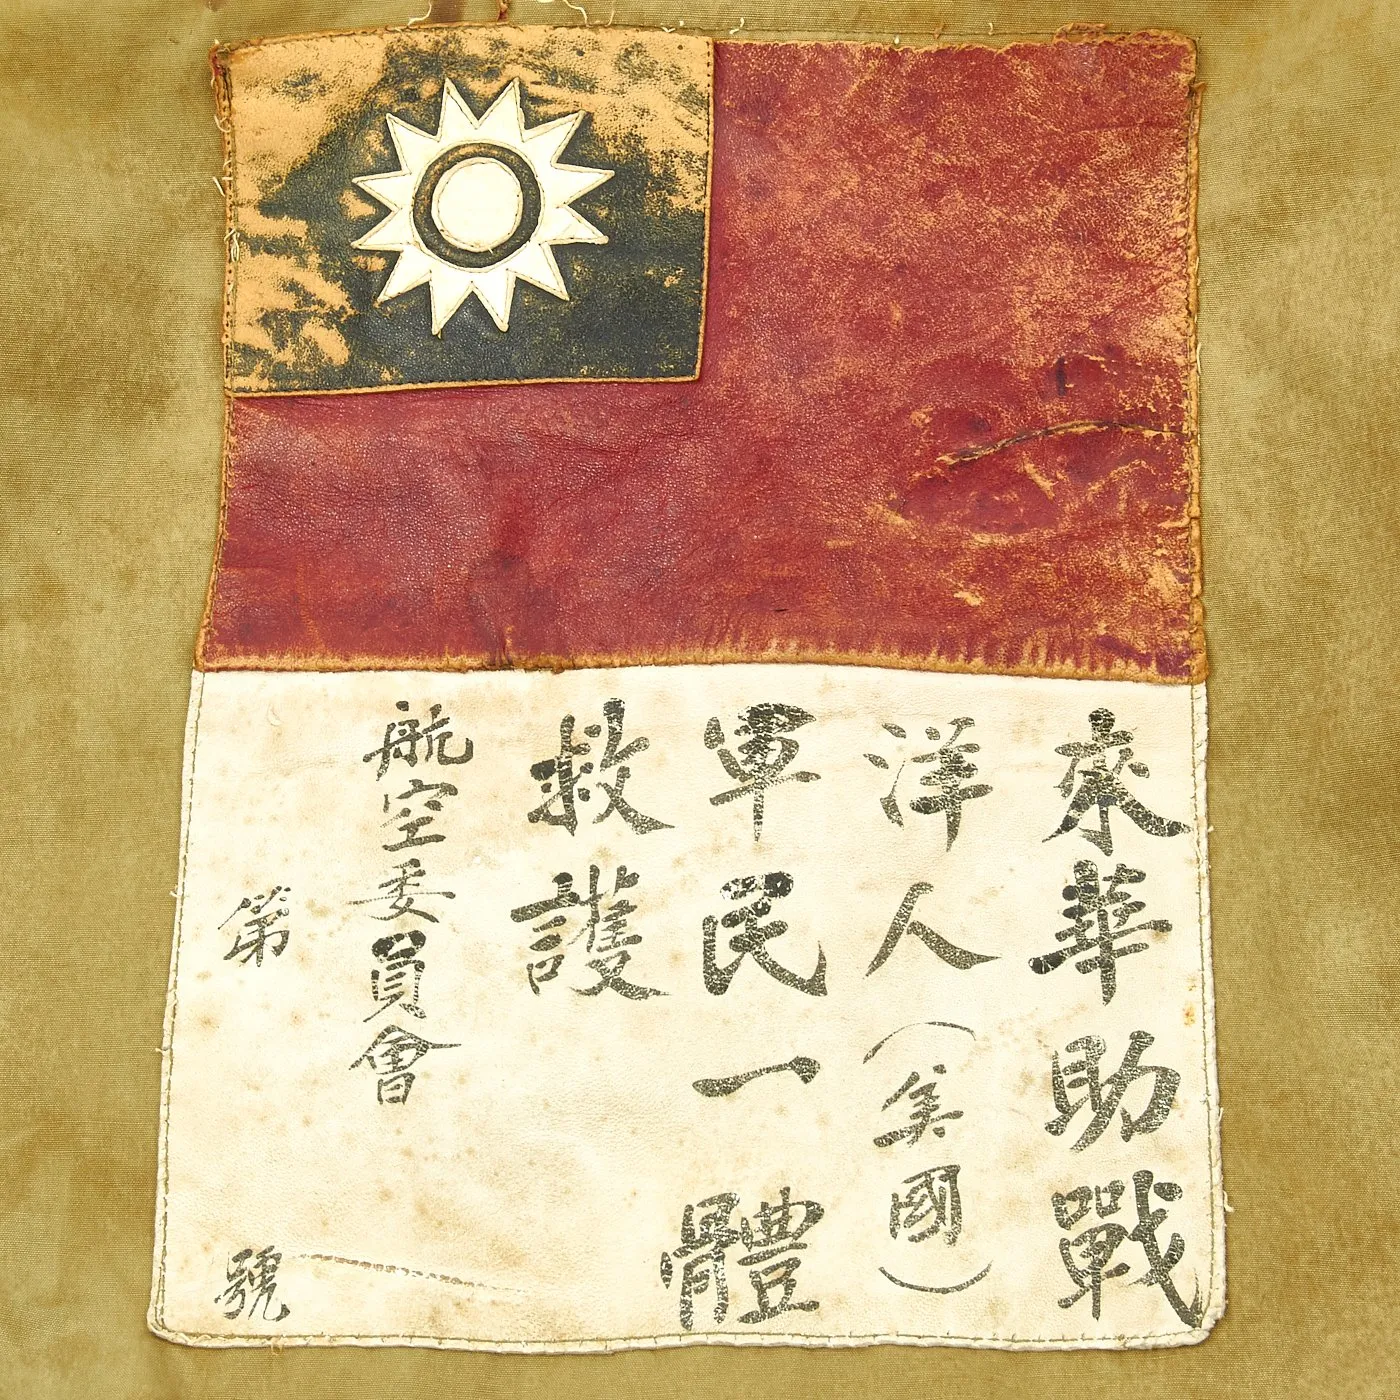 來華助戰
洋人（美國）
軍民一體
救護
航空委員會
第　號